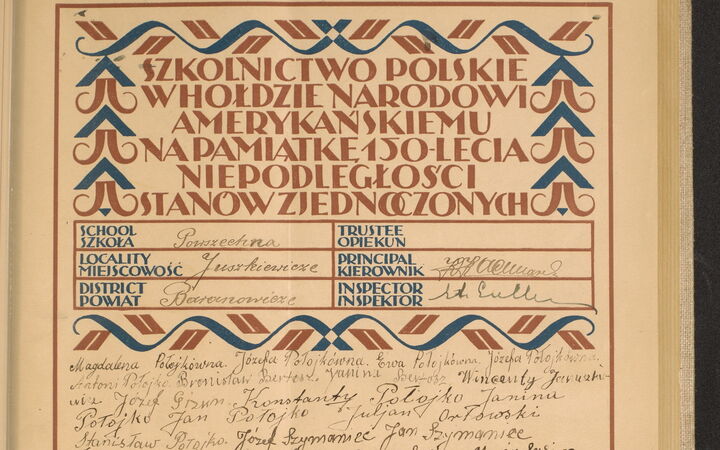 SZKOLNICTWO POLSKIE
W HOŁDZIE NARODOWI
AMERYKAŃSKIEMU
NA PAMIĄTKĘ 150-LECIA
NIEPODLEGŁOŚCI
STANÓW ZJEDNOCZONYCH
SCHOOL
SZKOŁA Powszechna
TRUSTEE
OPIEKUN
LOCALITY
MIEJSCOWOŚĆ Juszkiewicze
PRINCIPAL
KIEROWNIK
DISTRICT
POWIAT Baranowicze
INSPECTOR
INSPEKTOR
Magdalena Połojkówna. Józefa Połojkówna. Ewa Połojkówna. Józefa Połojkówna.
Antoni Połojko. Bronisław Bertosz. Janina Bertosz Wincenty
Józef Konstanty Połojko Janina
Połojko Jan Połojko Juljan Orłowski
Stanisław Połojko. Józef Szymaniec Jan Szymaniec